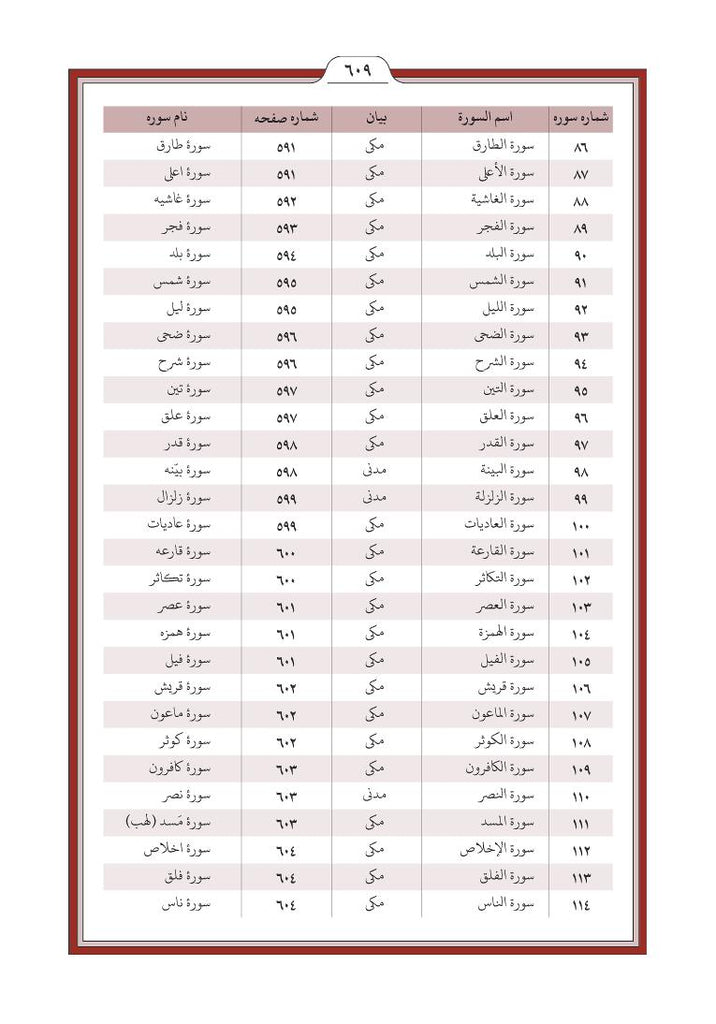 ٦٠٩
شماره سوره اسم السورة بیان شماره صفحه نام سوره
٨٦ سورة الطارق مکی ٥٩١ سورهٔ طارق
٨٧ سورة الأعلى مکی ٥٩١ سورهٔ اعلی
٨٨ سورة الغاشية مکی ٥٩٢ سورهٔ غاشیه
٨٩ سورة الفجر مکی ٥٩٣ سورهٔ فجر
٩٠ سورة البلد مکی ٥٩٤ سورهٔ بلد
٩١ سورة الشمس مکی ٥٩٥ سورهٔ شمس
٩٢ سورة الليل مکی ٥٩٥ سورهٔ لیل
٩٣ سورة الضحى مکی ٥٩٦ سورهٔ ضحی
٩٤ سورة الشرح مکی ٥٩٦ سورهٔ شرح
٩٥ سورة التين مکی ٥٩٧ سورهٔ تین
٩٦ سورة العلق مکی ٥٩٧ سورهٔ علق
٩٧ سورة القدر مکی ٥٩٨ سورهٔ قدر
٩٨ سورة البينة مدنی ٥٩٨ سورهٔ بیّنه
٩٩ سورة الزلزلة مدنی ٥٩٩ سورهٔ زلزال
١٠٠ سورة العاديات مکی ٥٩٩ سورهٔ عادیات
١٠١ سورة القارعة مکی ٦٠٠ سورهٔ قارعه
١٠٢ سورة التكاثر مکی ٦٠٠ سورهٔ تکاثر
١٠٣ سورة العصر مکی ٦٠١ سورهٔ عصر
١٠٤ سورة الهمزة مکی ٦٠١ سورهٔ همزه
١٠٥ سورة الفيل مکی ٦٠١ سورهٔ فیل
١٠٦ سورة قريش مکی ٦٠٢ سورهٔ قریش
١٠٧ سورة الماعون مکی ٦٠٢ سورهٔ ماعون
١٠٨ سورة الكوثر مکی ٦٠٢ سورهٔ کوثر
١٠٩ سورة الكافرون مکی ٦٠٣ سورهٔ کافرون
١١٠ سورة النصر مدنی ٦٠٣ سورهٔ نصر
١١١ سورة المسد مکی ٦٠٣ سورهٔ مَسد (لهب)
١١٢ سورة الإخلاص مکی ٦٠٤ سورهٔ اخلاص
١١٣ سورة الفلق مکی ٦٠٤ سورهٔ فلق
١١٤ سورة الناس مکی ٦٠٤ سورهٔ ناس